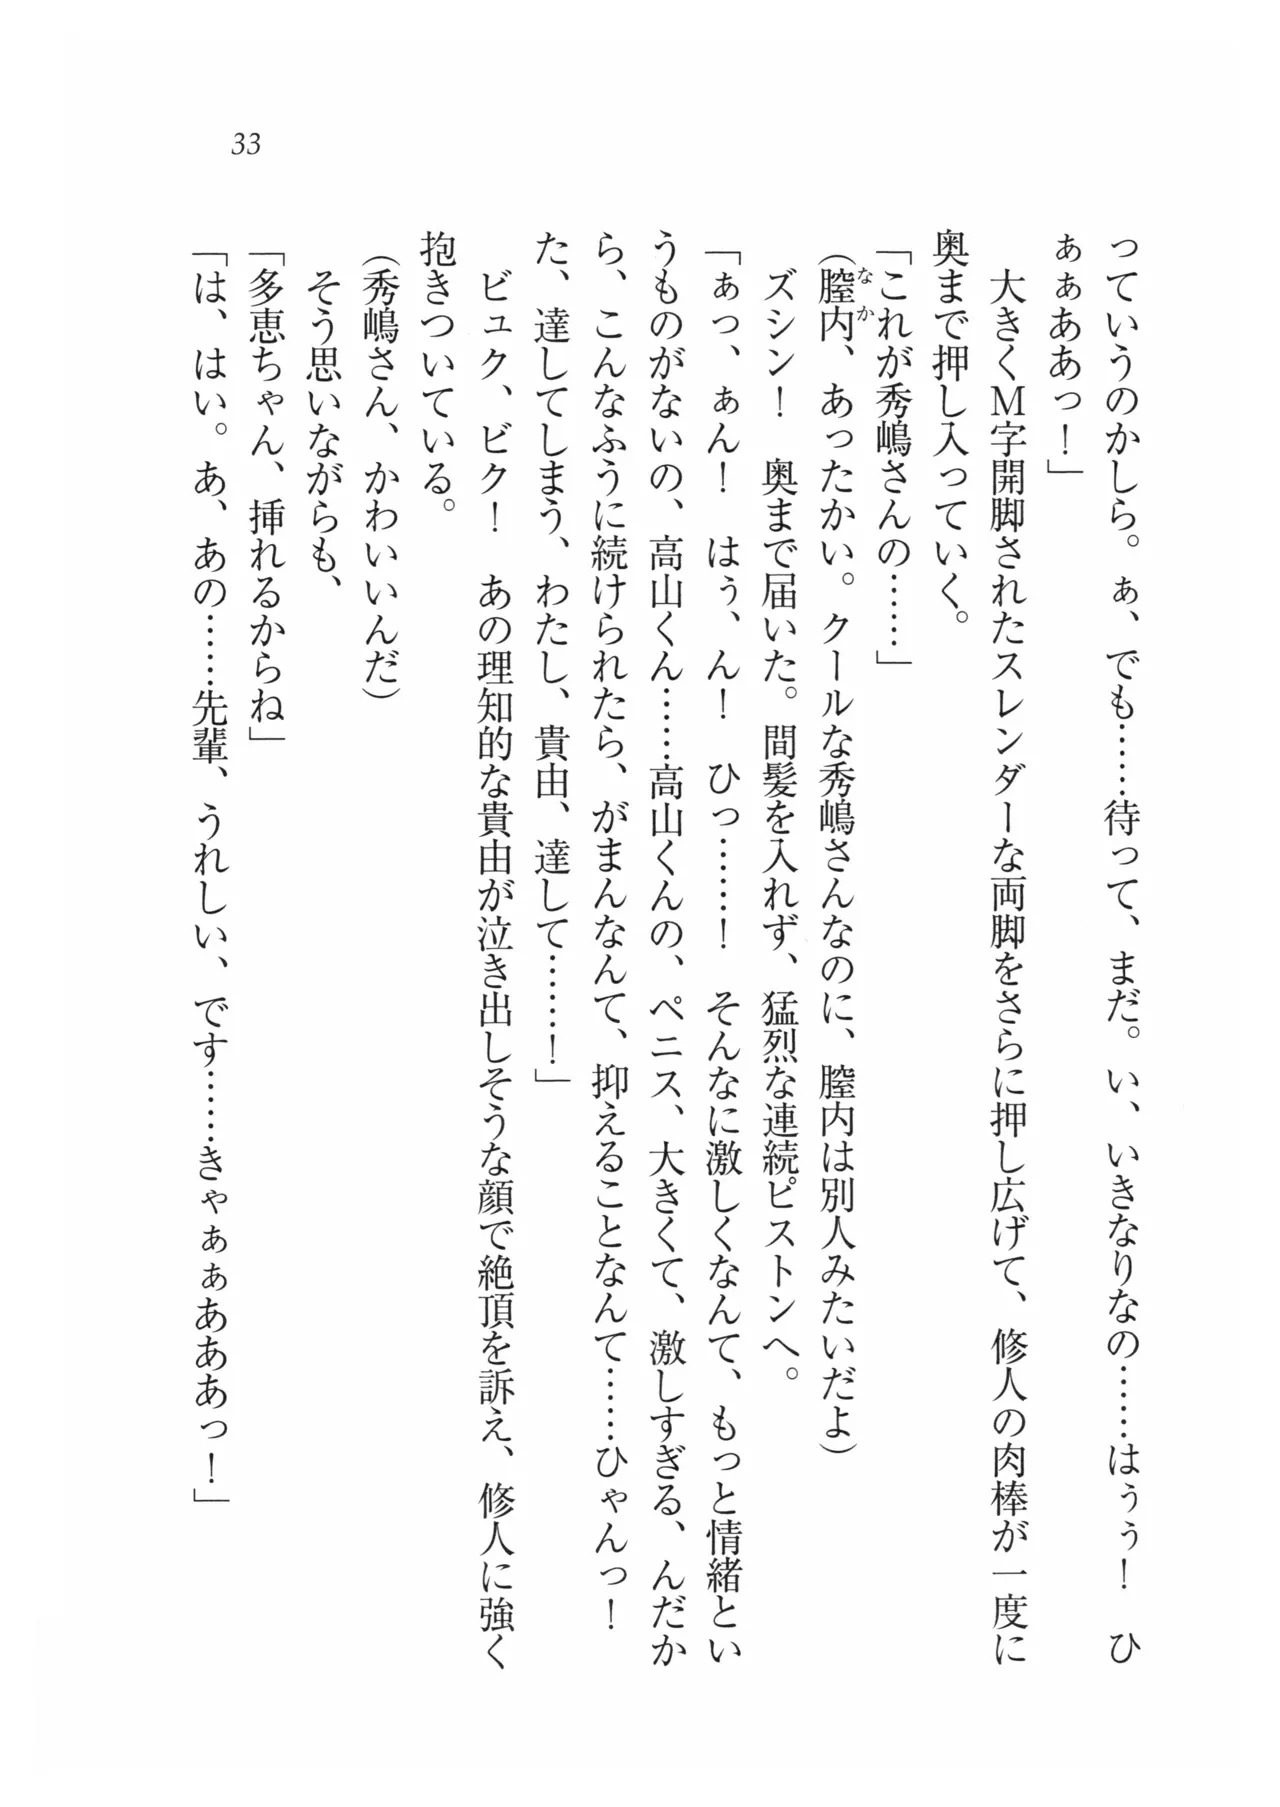 33
っていうのかしら。ぁ、でも……待って、まだ。い、いきなりなの……はぅぅ！　ひ
ぁぁああっ！」
　大きくＭ字開脚されたスレンダーな両脚をさらに押し広げて、修人の肉棒が一度に
奥まで押し入っていく。
「これが秀嶋さんの……」
なか
（膣内、あったかい。クールな秀嶋さんなのに、膣内は別人みたいだよ）
　ズシン！　奥まで届いた。間髪を入れず、猛烈な連続ピストンへ。
「ぁっ、ぁん！　はぅ、ん！　ひっ……！　そんなに激しくなんて、もっと情緒とい
うものがないの、高山くん……高山くんの、ペニス、大きくて、激しすぎる、んだか
ら、こんなふうに続けられたら、がまんなんて、抑えることなんて……ひゃんっ！
た、達してしまう、わたし、貴由、達して……！」
　ビュク、ビク！　あの理知的な貴由が泣き出しそうな顔で絶頂を訴え、修人に強く
抱きついている。
（秀嶋さん、かわいいんだ）
　そう思いながらも、
「多恵ちゃん、挿れるからね」
「は、はい。あ、あの……先輩、うれしい、です……きゃぁぁあああっ！」